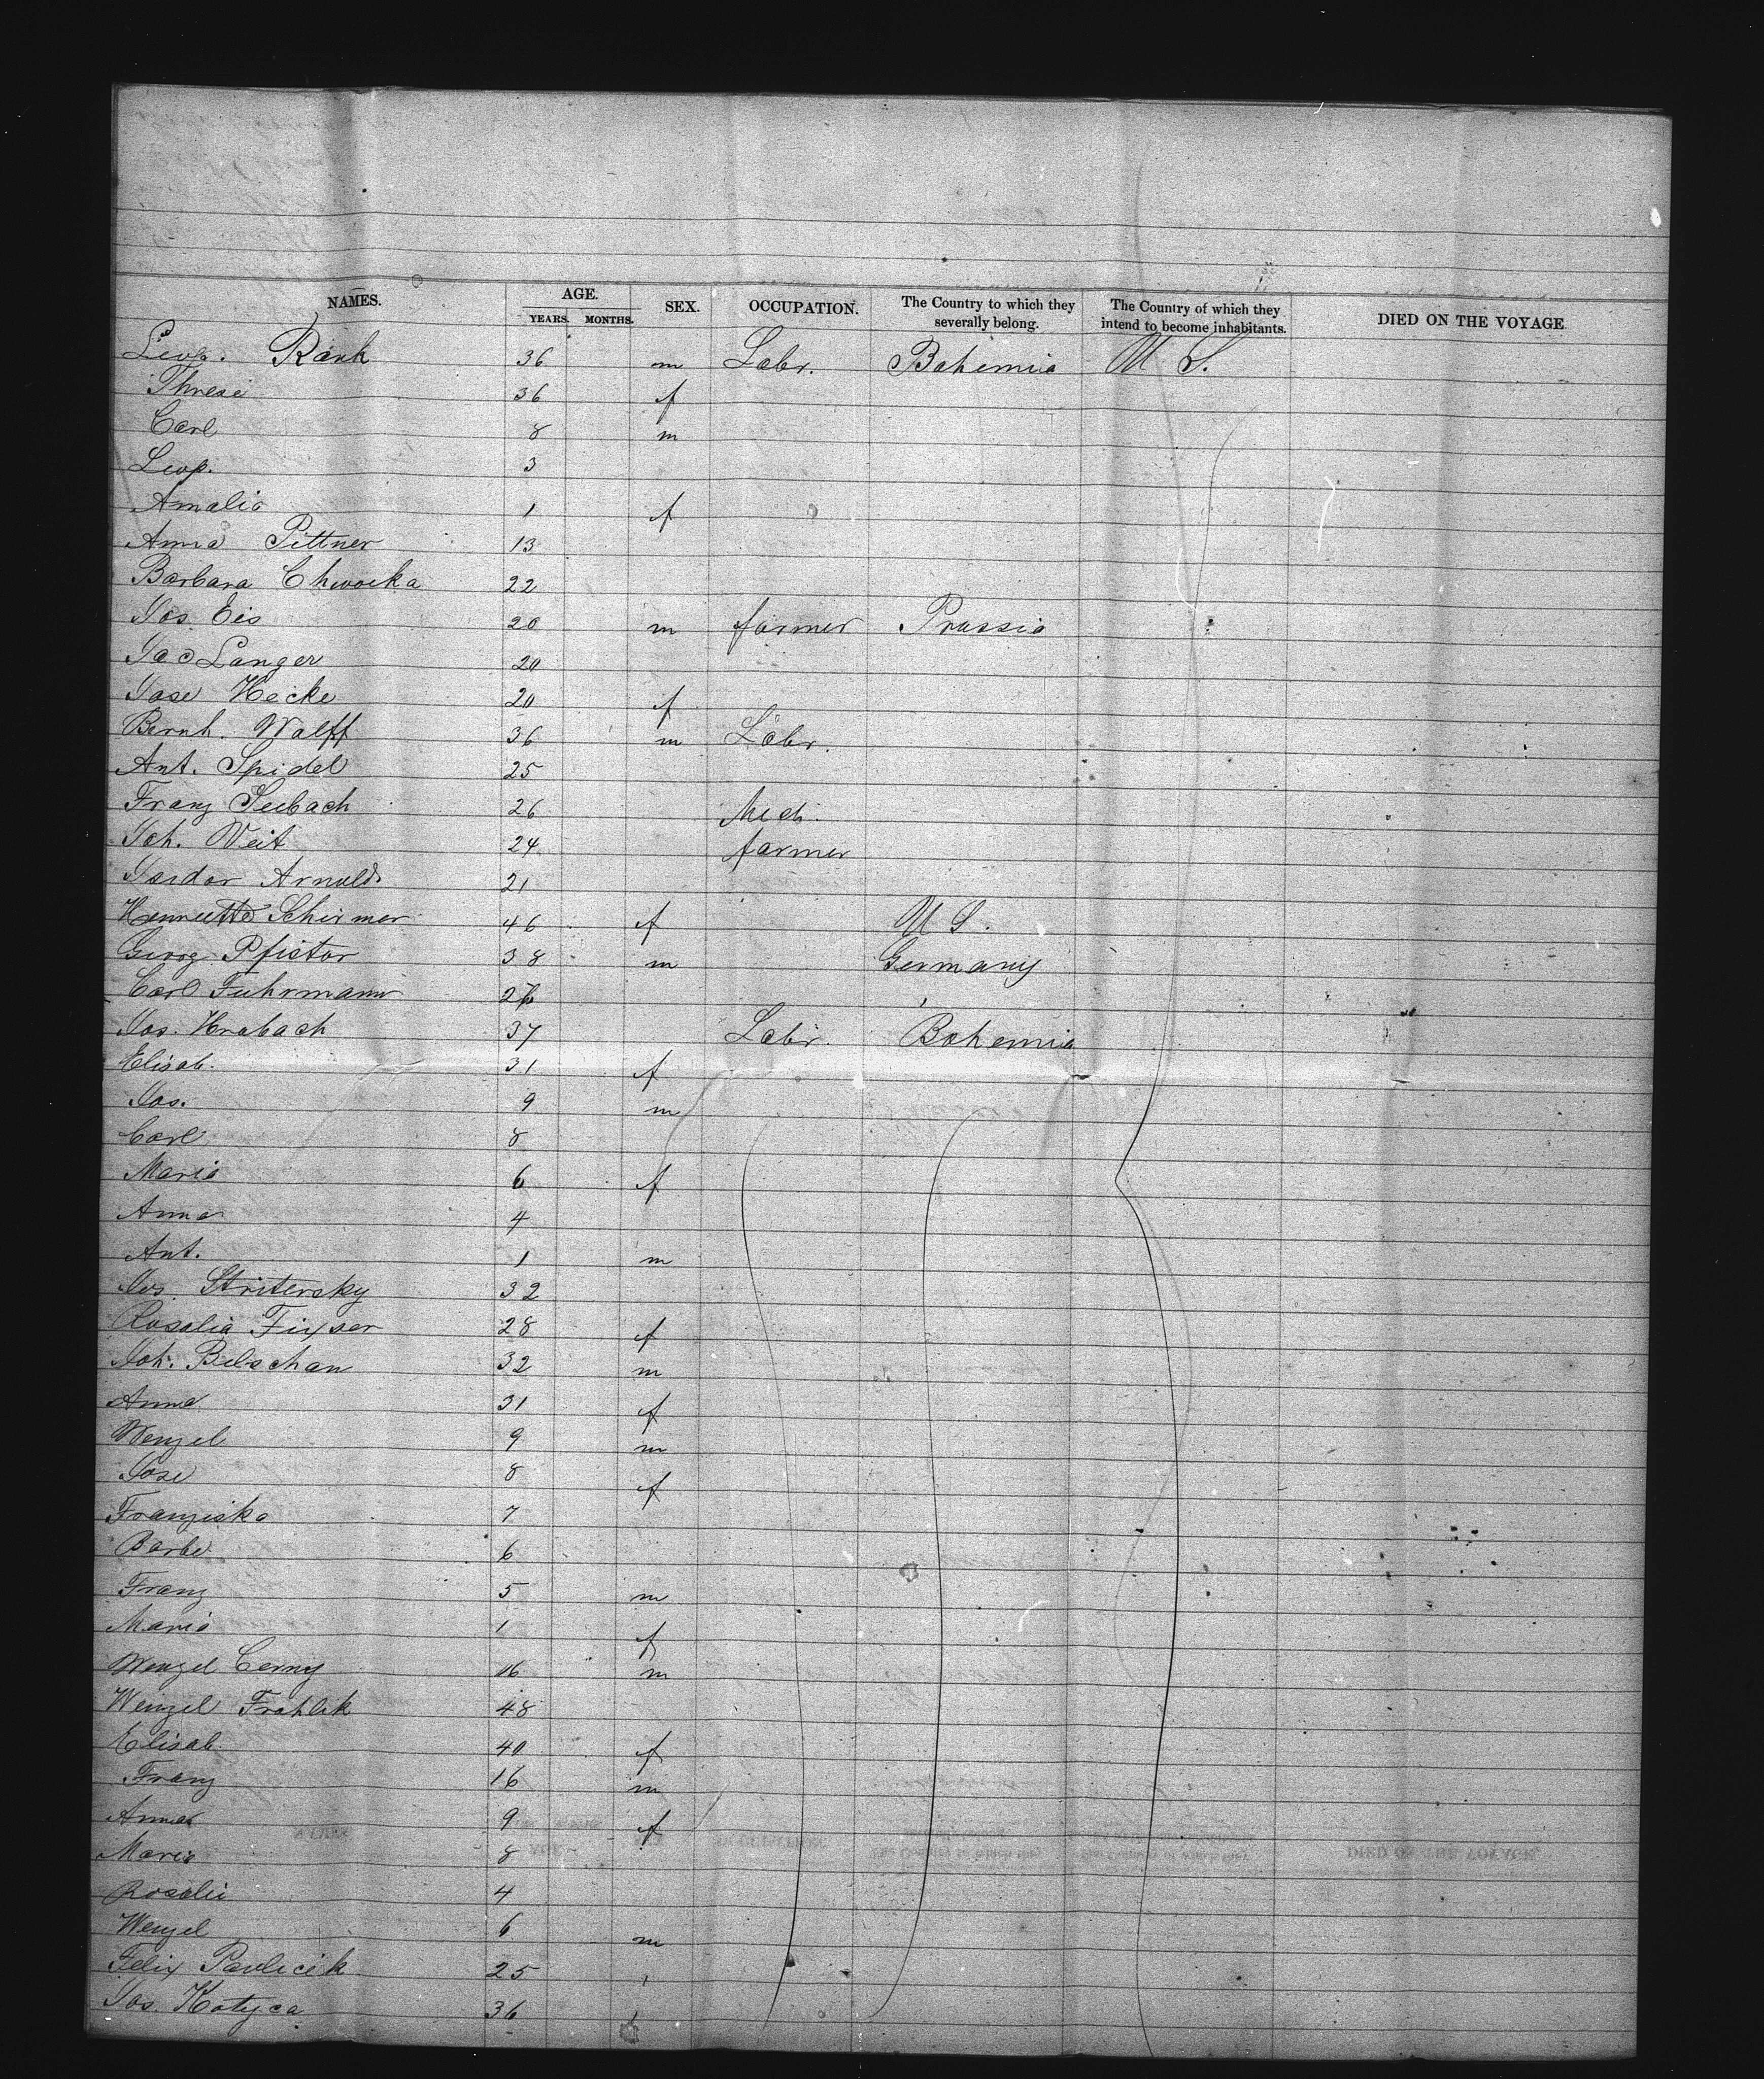 NAMES. AGE. SEX. OCCUPATION. The Country to which they severally belong. The Country of which they intend to become inhabitants. DIED ON THE VOYAGE
YEARS. MONTHS.
Leop. Rank 36 m Labr. Bohemia U S.
Threse 36 f
Carl 8 m
Leop. 3
Amalia 1 f
Anna Pittner 13
Barbara Chwocka 22
Jos. Eis 20 m farmer Prussia
Jac Langer 20
Jose Hecke 20 f
Bernh. Wolff 36 m Labr.
Ant. Spidel 25
Franz Seebach 26 Mech.
Joh. Veit 24 farmer
Isidor Arnold 21
Henriette Schirmer 46 f U S.
Georg Pfister 38 m Germany
Carl Fuhrmann
Jos. Hrabach 37 Labr. Bohemia
Elisab. 31 f
Jos. 9 m
Carl 8
Maria 6 f
Anna 4
Ant. 1 m
Jos. Stritersky 32
Rosalia Fixser 28 f
Joh. Belschan 32 m
Anna 31 f
Wenzel 9 m
Jose 8 f
Franziska 7
Barbe 6
Franz 5 m
Maria 1 f
Wenzel Cerny 16 m
Wenzel Frohlik 48
Elisab. 40 f
Franz 16 m
Anna 9 f
Maria 8
Rosalie 4
Wenzel 6 m
Felix Pavlicik 25
Jos Kotyca 36